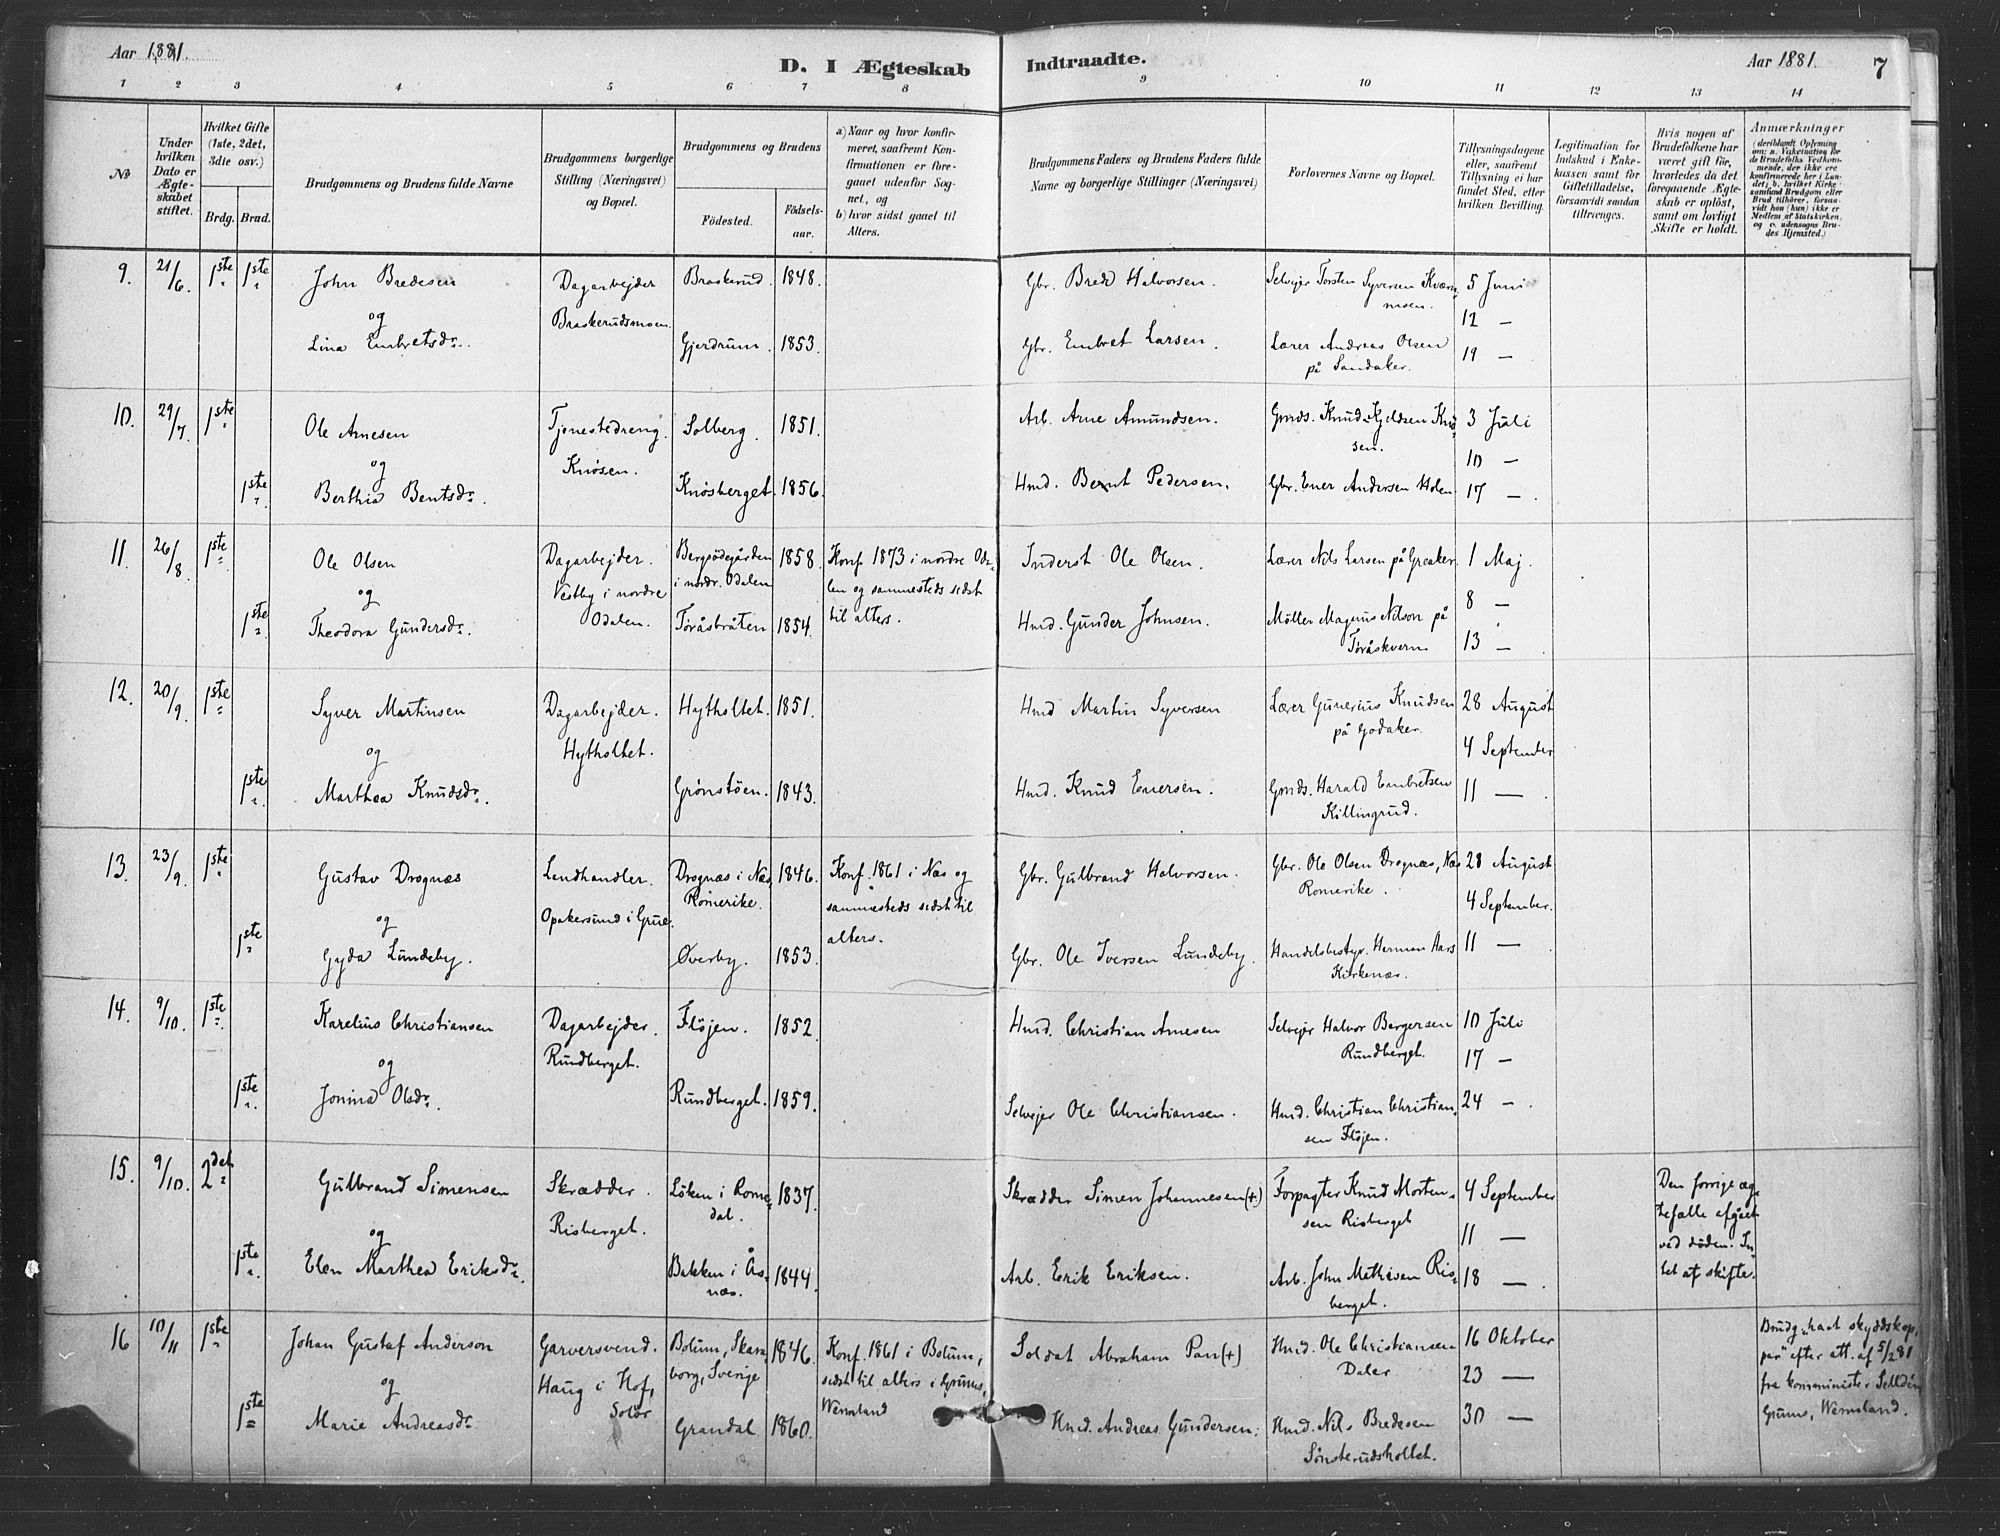 Aar 1881.
D. I Ægteskab Indtraadte.
Aar 1881.
7
1 2 3 4 5 6 7 8 9 10 11 12 13 14
No
Under hvilken Dato er Ægteskabet stiftet.
Hvilket Gifte (1ste, 2det, 3die osv.)
Brdg. Brud.
Brudgommens og Brudens fulde Navne
Brudgommens borgerlige Stilling (Næringsvei) og Bopæl.
Brudgommens og Brudens
Födested.
Födsels-aar.
a) Naar og hvor konfirmeret, saafremt Konfirmationen er foregaaet udenfor Sognet, og
b) hvor sidst gaaet til Alters.
Brudgommens Faders og Brudens Faders fulde Navne og borgerlige Stillinger (Næringsvei)
Forlovernes Navne og Bopæl.
Tillysningsdagene eller, saafremt Tillysning ei har fundet Sted, efter hvilken Bevilling.
Legitimation for Indskud i Enkekassen samt for Giftetilladelse, forsaavidt saadan tiltrænges.
Hvis nogen af Brudefolkene har været gift för, hvorledes da det foregaaende Ægteskab er oplöst, samt om lovligt Skifte er holdt.
Anmærkninger (deriblandt Oplysning om: a. Vakcination for de Brudefolks Vedkommende, der ikke ere konfirmerede her i Landet; b. hvilket Kirkesamfund Brudgom eller Brud tilhører, forsaavidt han (hun) ikke er Medlem af Statskirken, og c. udensogns Brudes Hjemsted.)
9. 21/6 1ste 1ste
John Bredesen
og
Lina Embretsdr.
Dagarbejder
Braskerudsmoen.
Braskerud 1848.
Gjerdrum. 1853.
Gbr. Brede Halvorsen.
Gbr. Embret Larsen.
Selvejer Torsten Syversen Kværnmoen.
Lærer Andreas Olsen
på Sandaker.
5 Juni
12 —
19 —
10. 29/7 1ste
1ste
Ole Arnesen
og
Berthia Bentsdr.
Tjenestedreng.
Knösen.
Solberg. 1851.
Knösberget. 1856.
Arb. Arne Amundsen.
Hmd. Bernt Pedersen.
Gmds. Knud Kjeldsen Knösen.
Gbr. Ener Andersen Holen.
3 Juli
10 —
17 —
11. 26/8 1ste
1ste
Ole Olsen
og
Theodora Gundersdr.
Dagarbejder.
Vestby i nordre
Odalen.
Bergsödegården
i nordr. Odalen 1858.
Toråsbråten 1854.
Konf. 1873 i nordre Odalen
og sammesteds sidst
til alters.
Inderst Ole Olsen.
Hmd. Gunder Johnsen.
Lærer Nils Larsen på Greaker.
Möller Magnus Nilson på
Toråskvern
1 Maj.
8 —
13 —
12. 20/9. 1ste
1ste
Syver Martinsen
og
Marthea Knudsdr.
Dagarbejder.
Hytholtet.
Hytholtet. 1851.
Grönstöen. 1843.
Hmd Martin Syversen
Hmd. Knud Enersen.
Lærer Gunerius Knudsen
på Godaker.
Gmds. Harald Embretsen
Killingrud.
28 August
4 September
11 —
13. 23/9. 1ste
1ste
Gustav Drognæs
og
Gyda Lundeby.
Landhandler.
Opakersund i Grue.
Drognæs i Næs,
Romerike. 1846.
Øverby. 1853.
Konf. 1861 i Næs og
sammesteds sidst til
alters.
Gbr. Gulbrand Halvorsen.
Gbr. Ole Iversen Lundeby.
Gbr. Ole Olsen Drognæs, Næs
Romerike.
Handelsbestyr. Herman Aars
Kirkenæs.
28 August
4 September.
11 —
14. 9/10. 1ste
1ste
Karelius Christiansen
og
Jonina Olsdr.
Dagarbejder.
Rundberget.
Flöjen. 1852.
Rundberget. 1859.
Hmd. Christian Arnesen
Selvejer Ole Christiansen.
Selvejer Halvor Bergersen
Rundberget.
Hmd. Christian Christiansen
Flöjen.
10 Juli
17 —
24 —
15. 9/10. 2det
1ste
Gulbrand Simensen
og
Elen Marthea Eriksdr.
Skrædder.
Risberget.
Löken i Romedal. 1837.
Bakken i Åsnæs. 1844.
Skrædder Simen Johannesen (+)
Arb. Erik Eriksen.
Forpagter Knud Mortensen
Risberget
Arb. John Mathisen Risberget.
4 September
11 —
18 —
Den forrige ægtefælle afgået
ved döden. Intet af skifte.
16 10/11 1ste
1ste
Johan Gustaf Anderson
og
Marie Andreasdr.
Garversvend.
Haug i Hof,
Solör
Bolum, Skaraborg, Sverige 1846.
Grandal 1860.
Konf. 1861 i Bolum,
sidst til alters i Grums,
Wermland
Soldat Abraham Pan (+)
Hmd. Andreas Gundersen.
Hmd. Ole Christiansen
Daler
Hmd. Nils Bredesen
Sönsterudsholtet.
16 Oktober
23 —
30 —
Brudg. havt skyddskoppar efter att. af 5/2 81
fra komminister Selldén
Grums, Wermland.